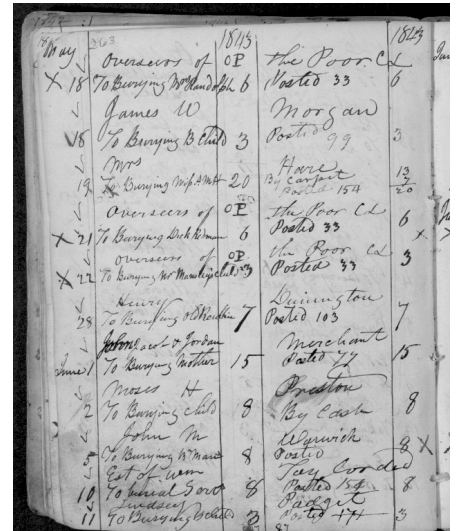 1843 1843
May 263 overseers of OP the Poor Cl
X 18 To Burying Mrs Randolph 6 Posted 33 6
James W Morgan
18 To Burying B Child 3 Posted 99 3
Mrs Hare 13
19 To Burying 20 By Carpet 7
Posted 154 20
overseers of OP the Poor Cl
X 21 To Burying Dick 6 Posted 33 6
overseers of OP the Poor Cl
X 22 To Burying child 3 Posted 33 3
Henry Dunington
28 To Burying old 7 Posted 103 7
John & Jordan Merchant
June 1 To Burying Mother 15 Posted 77 15
Moses H Preston
2 To Burying child 8 By Cash 8
John M Warwick
5 To Burying 8 Posted 8 X
Est of Wm
10 To burial 8 Posted 154 8
Lindsey Padget
11 To Burying B child 3 Posted 174 3